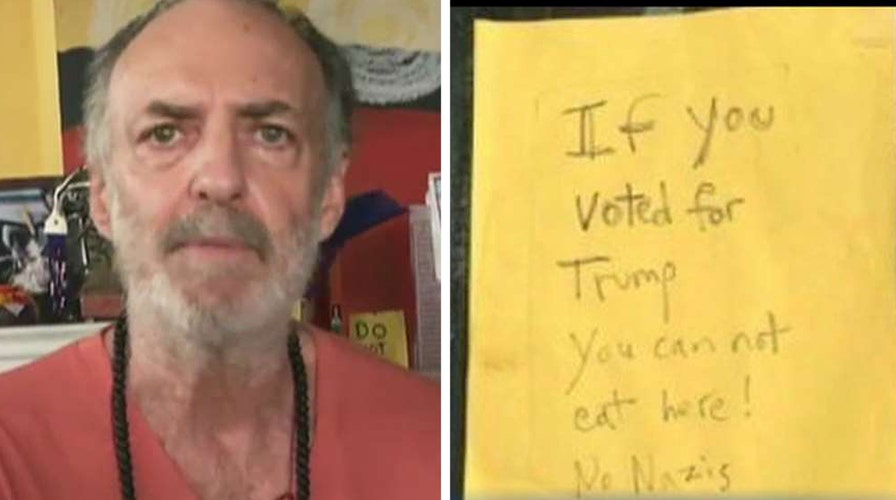 DO
If you
Voted for
Trump
You can not
eat here!
No Nazis